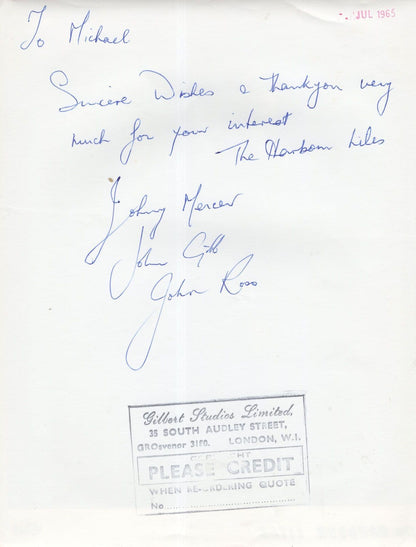 JUL 1965
To Michael
Sincere Wishes & thankyou very
much for your interest
The Harbour Lites
Johnny Mercer
John Gibb
John Ross
Gilbert Studios Limited,
35 SOUTH AUDLEY STREET,
GROsvenor 3180. LONDON, W.1.
COPYRIGHT
PLEASE CREDIT
WHEN RE-ORDERING QUOTE
No